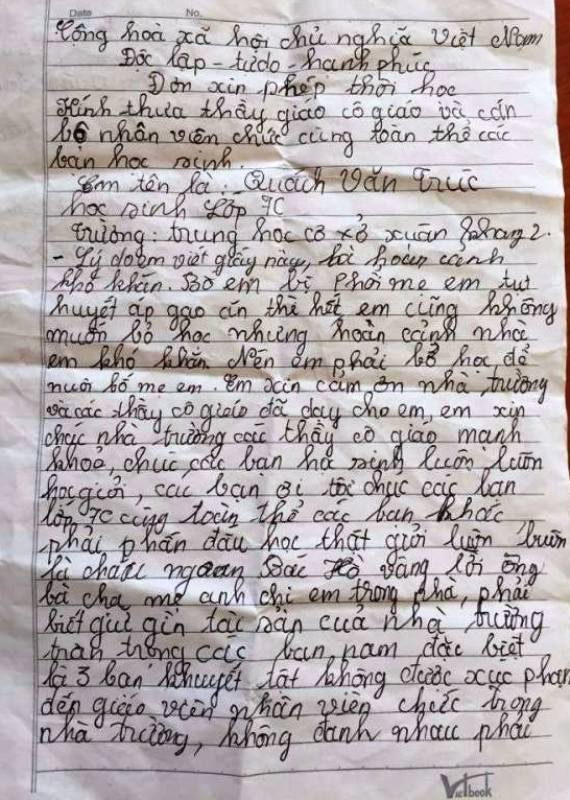 Date No.
Cộng hoà xã hội chủ nghĩa Việt Nam
Độc lập - tự do - hạnh phúc
Đơn xin phép thôi học
Kính thưa thầy giáo cô giáo và cán
bộ nhân viên chức cùng toàn thể các
bạn học sinh.
Em tên là: Quách Văn Trúc
học sinh Lớp 7C
Trường: trung học cơ xở xuân 2.
- Lý do em viết giấy này, hoàn cảnh
khó khăn. Bố em bị phổi mẹ em tụt
huyết áp gạo ăn thì hết em cũng không
muốn bỏ học nhưng hoàn cảnh nhà
em khó khăn. Nên em phải bỏ học để
nuôi bố mẹ em. Em xin cảm ơn nhà trường
và các thầy cô giáo đã dạy cho em, em xin
chúc nhà trường các thầy cô giáo mạnh
khoẻ, chúc các bạn học sinh luôn luôn
học giỏi, các bạn ơi tôi chúc các bạn
lớp 7C cùng toàn thể các bạn khác
phải phấn đấu học thật giỏi luôn luôn
là cháu ngoan Bác Hồ vâng lời ông
bà cha mẹ anh chị em trong nhà, phải
biết giữ gìn tài sản của nhà trường
trân trọng các bạn nam đặc biệt
là 3 bạn khuyết tật không được xúc phạm
đến giáo viên nhân viên chức trong
nhà trường, không đánh nhau phải
Vietbook